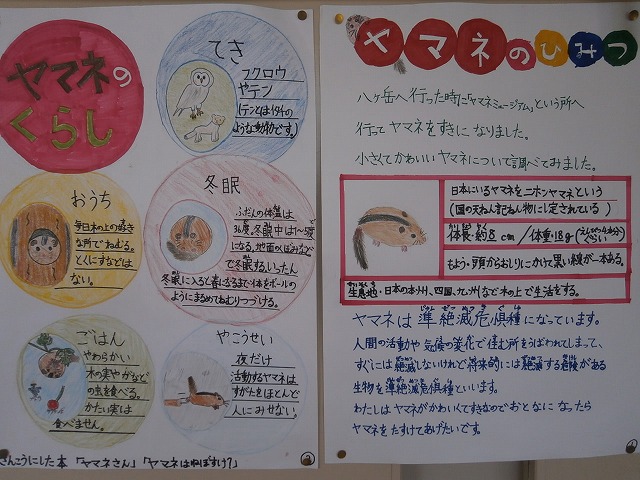 ヤマネのひみつ
八ヶ岳へ行った時に「ヤマネミュージアム」という所へ
行ってヤマネをすきになりました。
小さくてかわいいヤマネについて調べてみました。
日本にいるヤマネをニホンヤマネという
(国の天ねん記ねん物に指定されている)
体長・約8cm/体重・18g
もよう・頭からおしりにかけて黒い線が一本ある。
生息地・日本の本州、四国、九州などで木の上で生活をする。
ヤマネは準絶滅危惧種になっています。
人間の活動や気候の変化で住む所をうばわれてしまって、
すぐには絶滅しないけれど将来的には絶滅する危険がある
生物を準絶滅危惧種といいます。
わたしはヤマネがかわいくてすきなのでおとなになったら
ヤマネをたすけてあげたいです。
①
ヤマネの
くらし
てき
フクロウ
やテン
(テンとはイタチの
ような動物です。)
おうち
毎日木の上の好き
な所でねむる。
とくにすなどは
ない。
冬眠
ふだんの体温は
36度。冬眠中は1〜2度
になる。地面のくぼみなど
で冬眠する。いったん
冬眠に入ると春になるまで体をボールの
ようにまるめてねむりつづける。
ごはん
やわらかい
木の実やガなど
の虫を食べる。
かたい実は
食べません。
やこうせい
夜だけ
活動するヤマネは
すがたをほとんど
人にみせない。
さんこうにした本「ヤマネさん」「ヤマネはねぼすけ?」
②